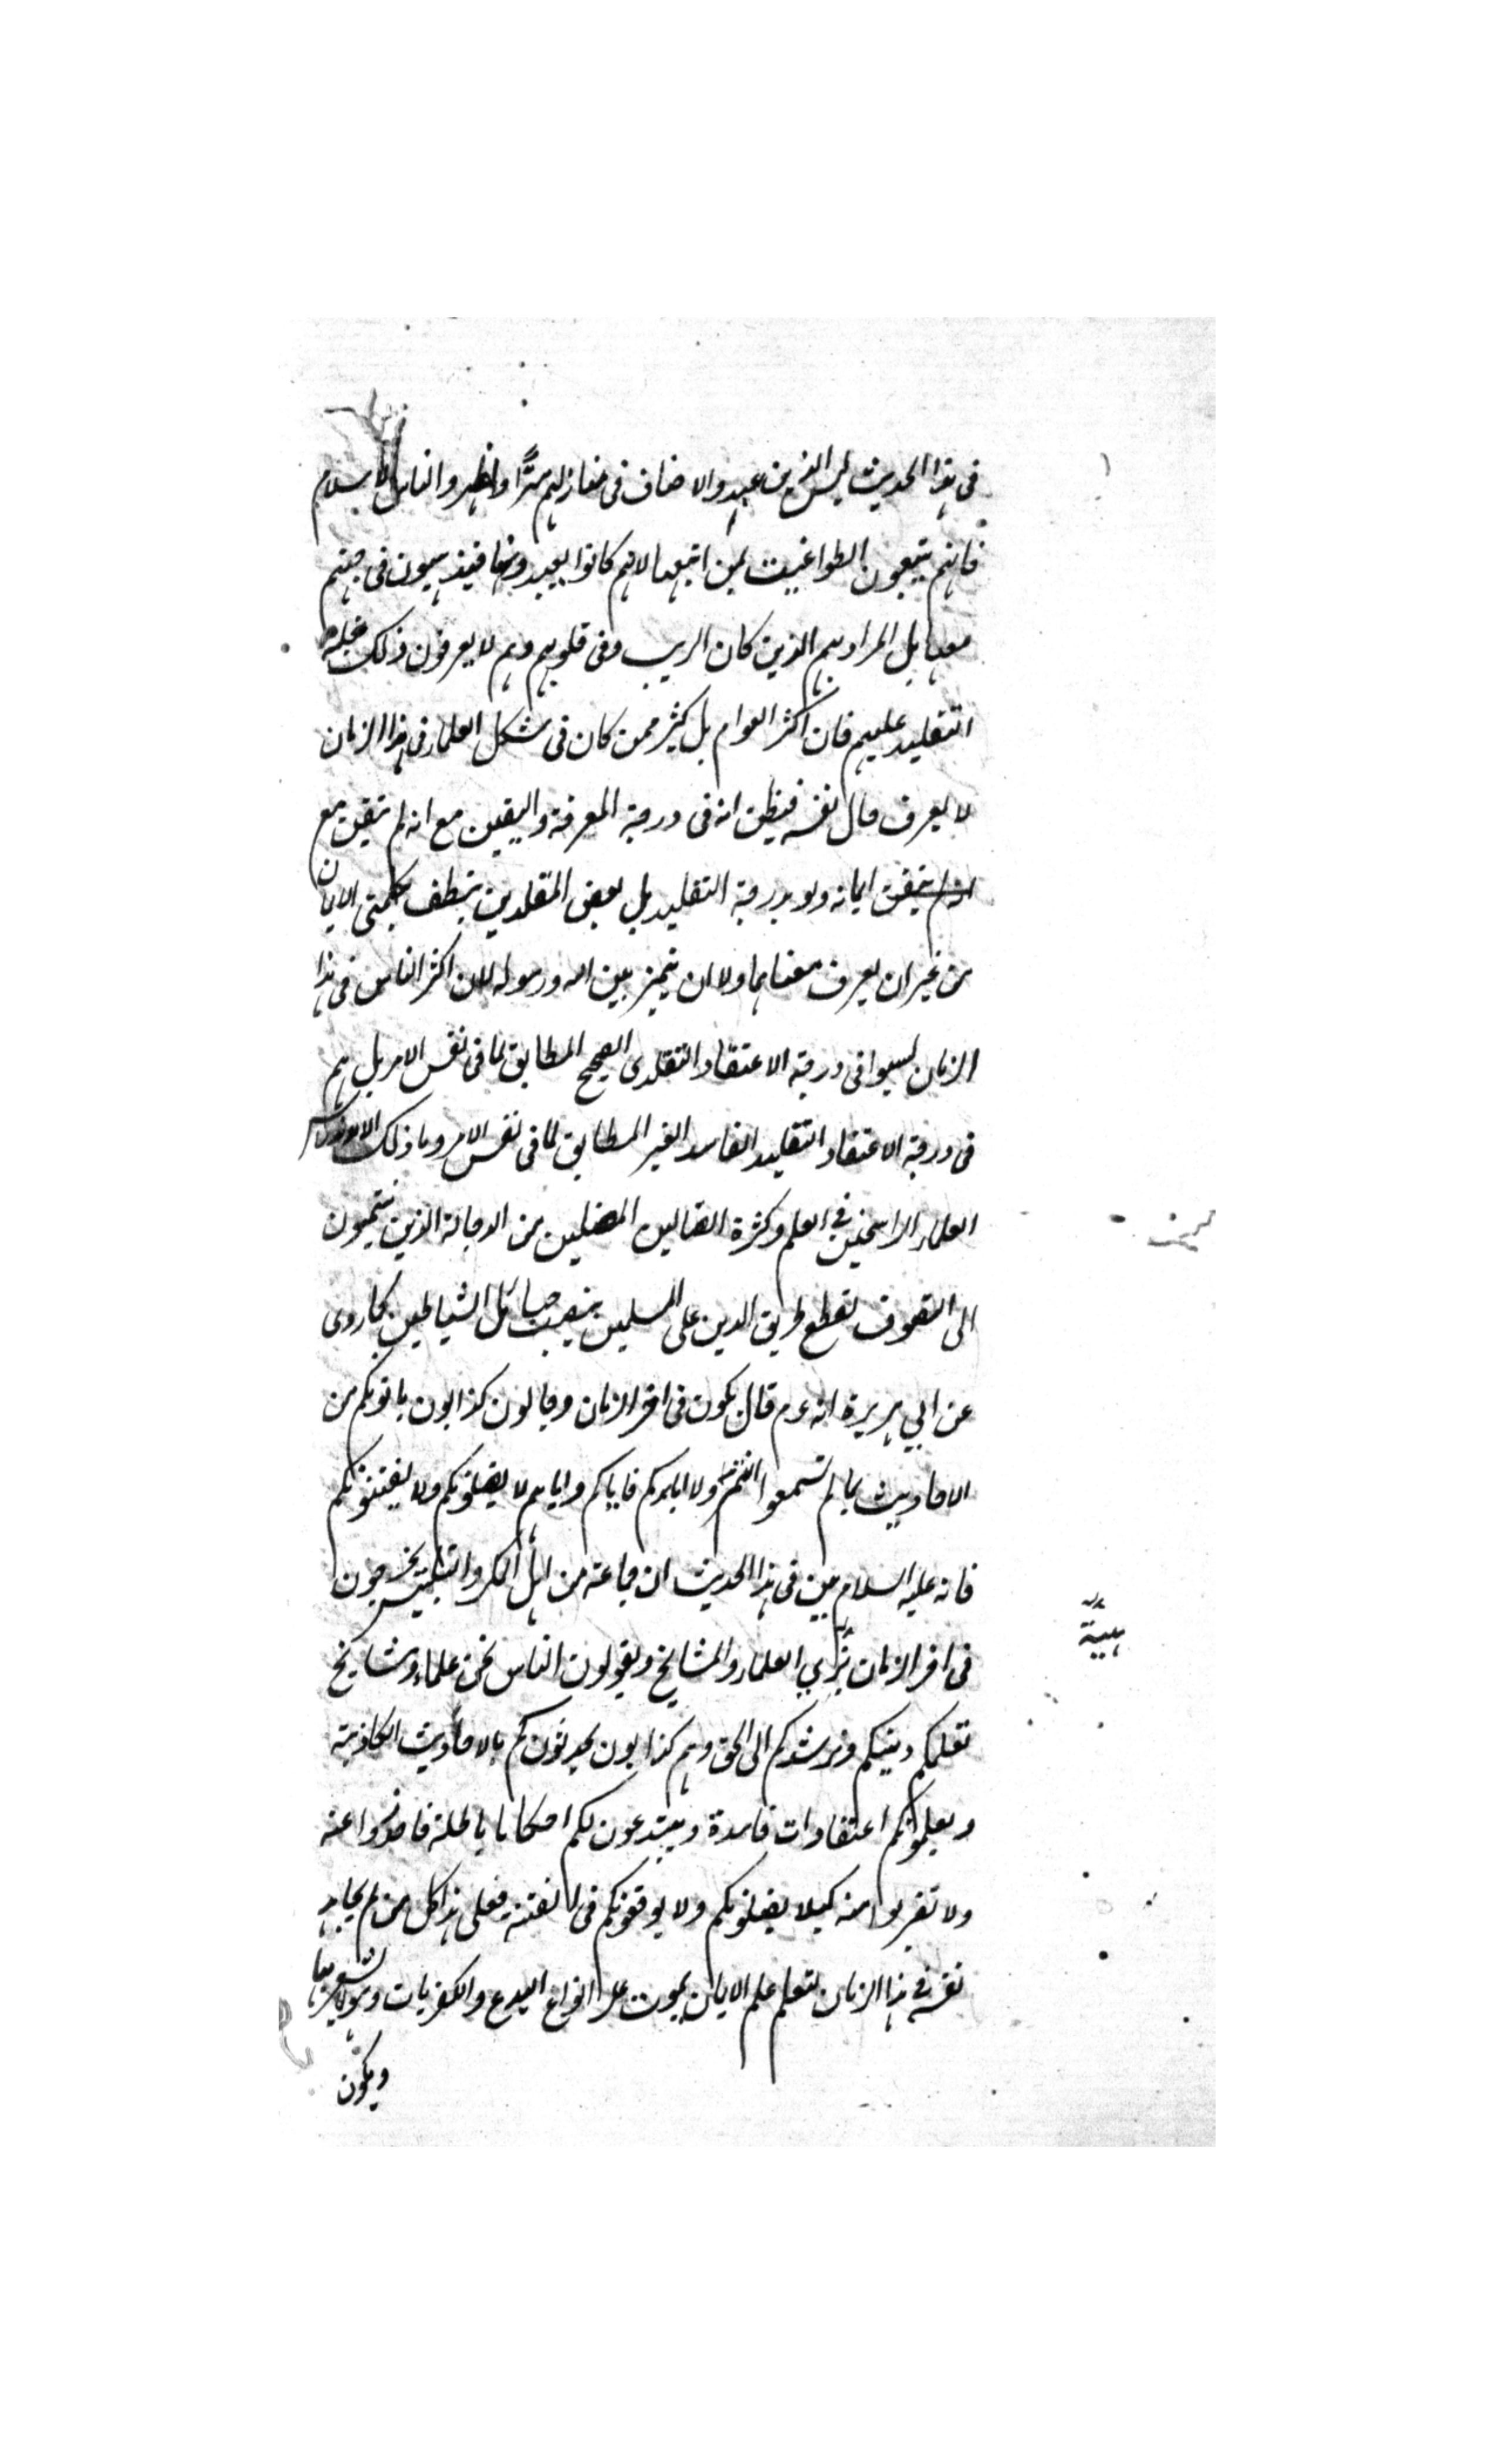 في هذا الحديث ليس الذين عبدوا الاصنام في منازلهم سرًّا واظهروا الناس الاسلام
فانهم يتبعون الطواغيت لمن اتبعها لانهم كانوا يعبدونها فيذهبون في جهنم
معها بل المراد بهم الذين كان الريب في قلوبهم وهم لا يعرفون ذلك لغلبة
التقليد عليهم فان اكثر العوام بل كثير ممن كان في شكل العلماء في هذا الزمان
لا يعرف حال نفسه فيظن انه في درجة المعرفة واليقين مع انه لم يتيقن مع
انه لم يتيقن ايمانه ولو بدرجة التقليد بل بعض المقلدين ينطف بكلمتي الايمان
من غير ان يعرف معناهما ولا ان يتميز بين الله ورسوله لان اكثر الناس في هذا
الزمان ليسوا في درجة الاعتقاد التقلدى الصحيح المطابق لما في نفس الامر بل هم
في درجة الاعتقاد التقليد الفاسد الغير المطابق لما في نفس الامر وما ذلك الا
العلماء الراسخين في العلم وكثرة الضالين المضلين من الدجالة الذين ينتمون
الى التصوف لقطع طريق الدين على المسلمين بنصب حبائل الشياطين كما روى
عن ابي هريرة انه عم قال يكون في اخر الزمان دجالون كذابون ياتونكم من
الاحاديث بما لم تسمعوا انتم ولا اباءكم فاياكم واياهم لا يضلونكم ولا يفتنونكم
فانه عليه السلام بين في هذا الحديث ان جماعة من اهل المكر والتلبيس يخرجون
في اخر الزمان بزي العلماء والمشايخ ويقولون الناس نحن علماء ومشايخ
نعلمكم دينكم ونرشدكم الى الحق وهم كذابون يحدثونكم بالاحاديث الكاذبة
ويعلمونكم اعتقادات فاسدة ويبتدعون لكم احكاما باطلة فاحذروا عنه
ولا تقربوا منه كيلا يضلونكم ولا يوقعونكم في الفتنة فعلى هذا كل من لم يجاهد
نفسه في هذا الزمان لتعلم علم الايمان يموت على انواع البدع والكفريات وهو لا يشعر بها
ويكون
هيئة